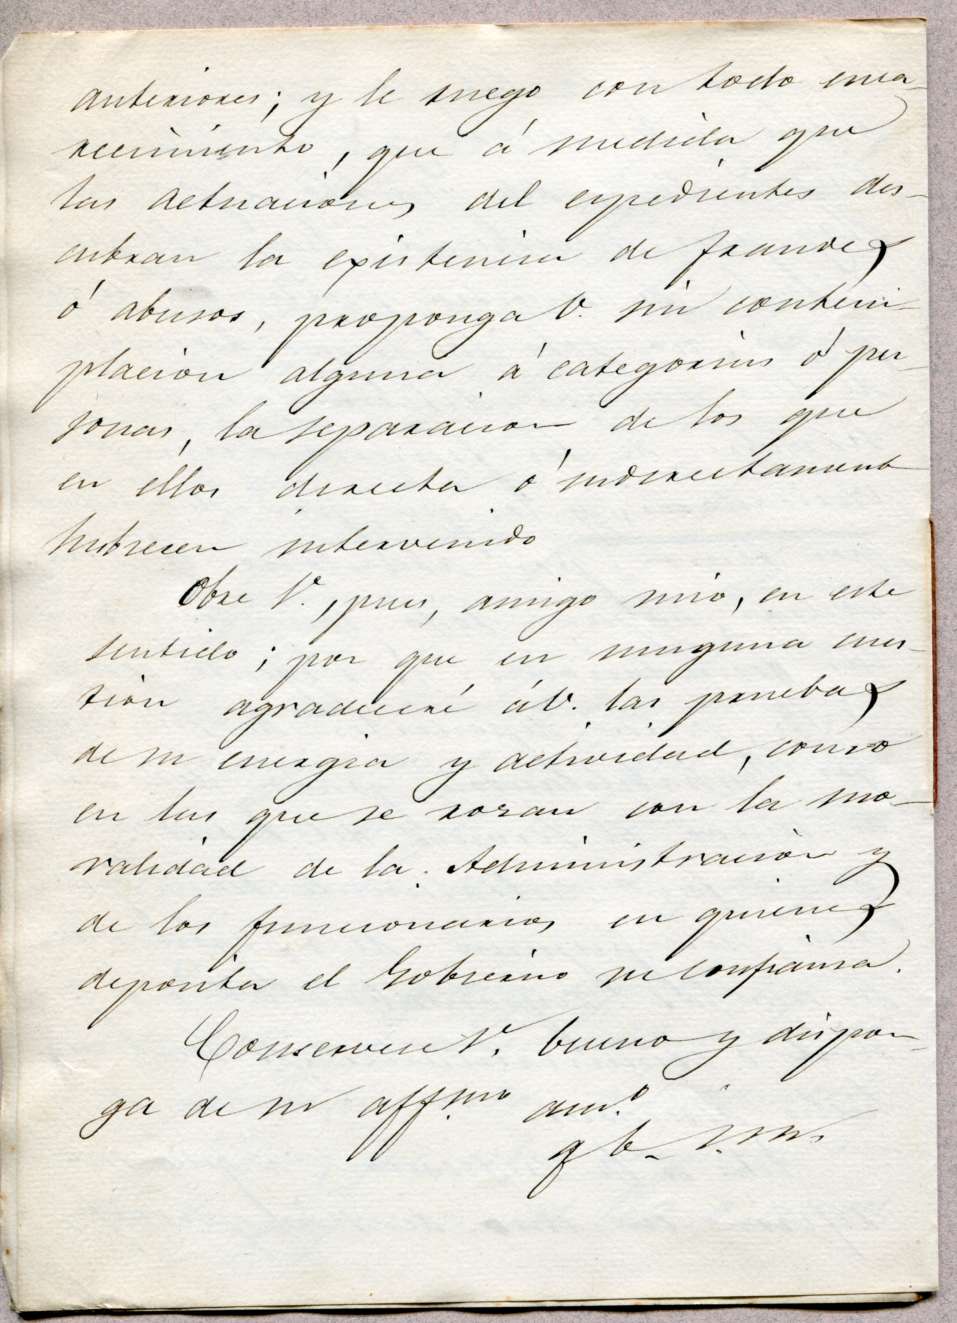 anteriores; y le ruego con todo enca-
recimiento, que á medida que
las actuaciones del expedientes des-
cubran la existencia de fraudes
ó abusos, proponga V. sin contem-
placion alguna á categorias ó per-
sonas, la separacion de los que
en éllos directa ó indirectamente
hubiesen intervenido
Obre V., pues, amigo mio, en este
sentido; por que en ninguna cues-
tión agradeceré á V. las pruebas
de su energia y actividad, como
en las que se rozan con la mo-
ralidad de la Administración y
de los funcionarios en quienes
deposita el Gobierno su confianza.
Conservese V. bueno y dispon-
ga de su affmo amo
q b. s. m.